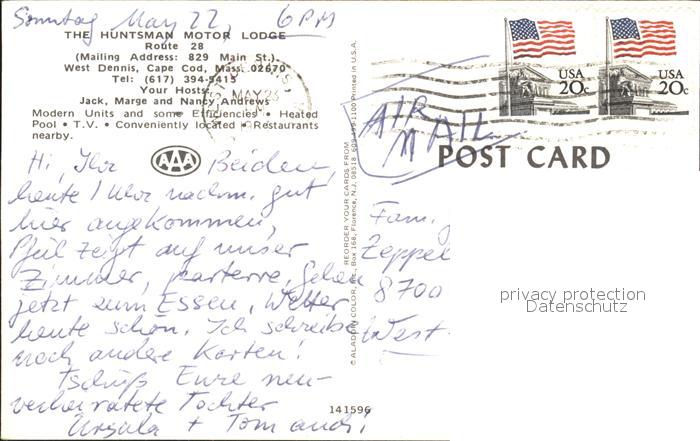 Sonntag May 22, 6 PM
THE HUNTSMAN MOTOR LODGE
Route 28
(Mailing Address: 829 Main St.)
West Dennis, Cape Cod, Mass. 02670
Tel: (617) 394-5415
Your Hosts:
Jack, Marge and Nancy Andrews
Modern Units and some Efficiencies • Heated
Pool • T.V. • Conveniently located • Restaurants
nearby.
AAA
Hi, Ihr Beiden,
heute 1 Uhr nachm. gut
hier angekommen,
Pfeil zeigt auf unser
Zimmer, parterre, Gehen
jetzt zum Essen, Wetter
heute schön. Ich schreibe
noch andere Karten!
Tschüß Eure neu-
verheiratete Tochter
Ursula + Tom auch!
REORDER YOUR CARDS FROM
© ALADDIN COLOR, Inc., Box 168, Florence, N.J. 08518 609-499-1100 Printed in U.S.A.
141596
MAY 23
USA
20c
USA
20c
AIR
MAIL
POST CARD
Fam.
Zeppel
8700
West-
privacy protection
Datenschutz